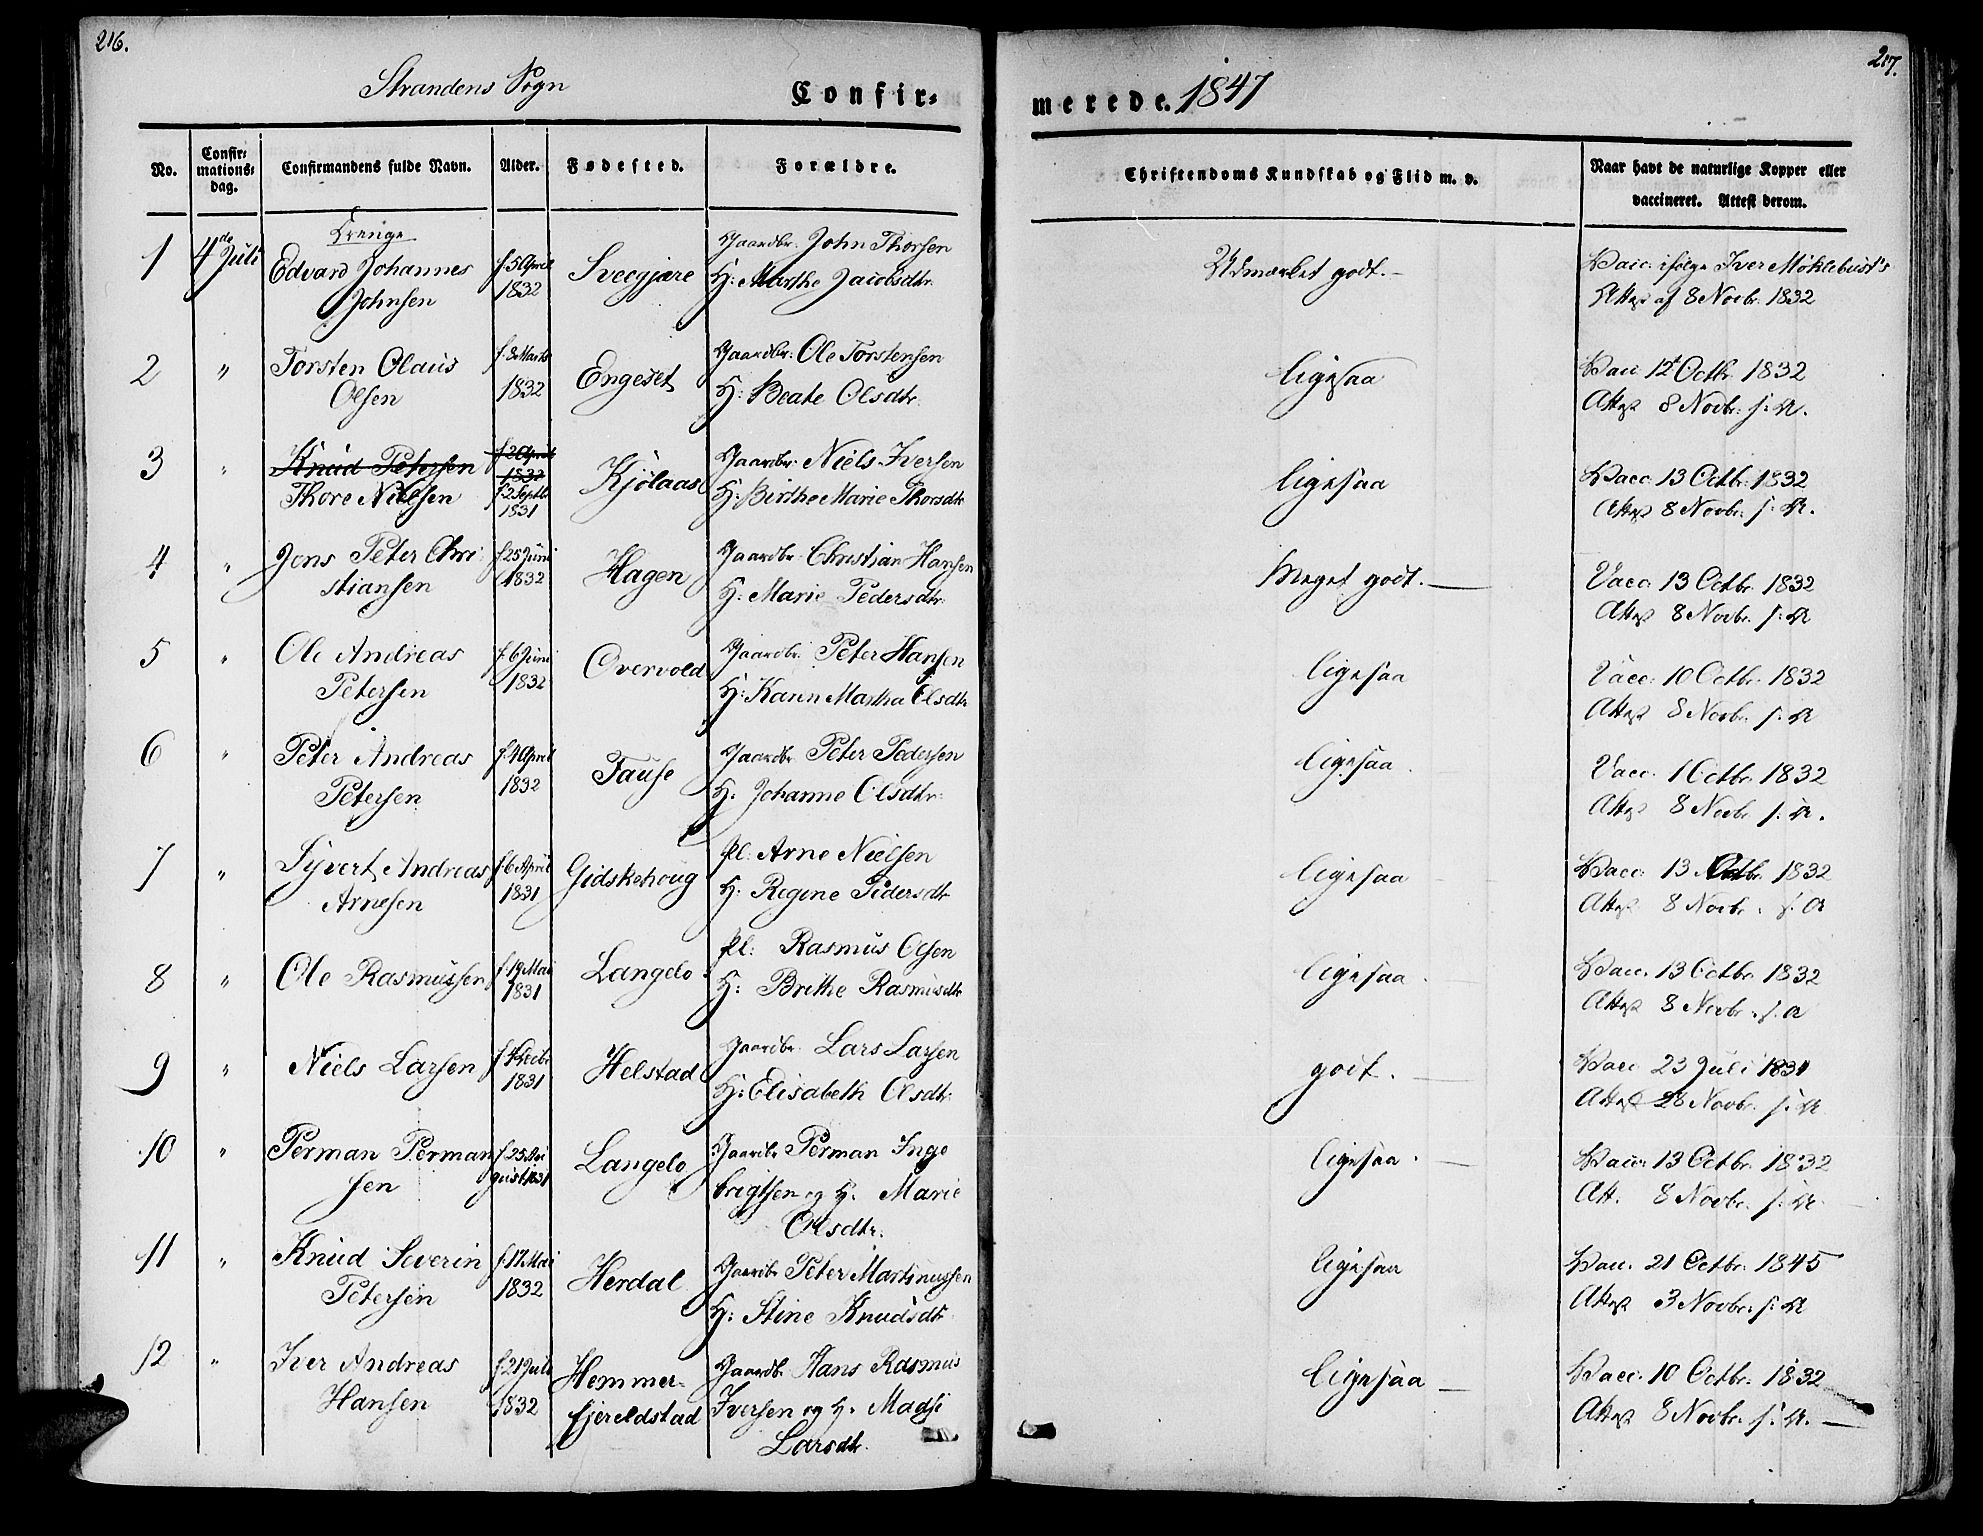 216.
Strandens Sogn
Confir-
No.
Confir-
mations-
dag.
Confirmandens fulde Navn.
Alder.
Fødested.
Forældre.
Drenge
1
4de Juli
Edvard Johannes
Johnsen
f. 5 April
1832
Sveegjære
Gaardbr. John Thorsen
H: Marthe Jacobsdtr.
2
"
Torsten Olaus
Olsen
f. 8 Marts
1832
Engeset
Gaardbr: Ole Torstensen
H: Beate Olsdtr.
3
"
Knud Petersen
Thore Nielsen
f. 2 April
1832
f. 2 Septb
1831
Kjølaas
Gaardbr. Niels Iversen
H: Birthe Marie Thorsdtr
4
"
Jens Peter Chri
stiansen
f. 25 Juni
1832
Hagen
Gaardbr. Christian Hansen
H: Marie Pedersdtr.
5
"
Ole Andreas
Petersen
f. 6 Juni
1832
Overvold
Gaardbr. Peter Hansen
H: Karin Martha Olsdtr
6
"
Peter Andreas
Petersen
f. 4 April
1832
Fause
Gaardbr. Peter Pedersen
H. Johanne Olsdtr.
7
"
Syvert Andreas
Arnesen
f. 6 April
1831
Gidskehoug
Pl: Arne Nielsen
H: Regine Pedersdtr
8
"
Ole Rasmussen
f. 19 Mai
1831
Langelo
Pl: Rasmus Olsen
H: Brithe Rasmusdtr
9
"
Niels Larsen
1831
Helstad
Gaardbr. Lars Larsen
H: Elisabeth Olsdtr.
10
"
Perman Perman
sen
f. 25 Au
gust 1831
Langelo
Gaardbr Perman Inge
brigtsen og H. Marie
Olsdtr.
11
"
Knud Severin
Petersen
f. 17 Mai
1832
Herdal
Gaardbr Peter Martinussen
H: Stine Knudsdtr
12
"
Iver Andreas
Hansen
f. 21 Juli
1832
Hemmer-
fjereldstad
Gaardbr. Hans Rasmus
Iversen og H. Madsi
Larsdtr.
217.
merede. 1847
Christendoms Kundskab og Flid m. v.
Naar havt de naturlige Kopper eller
vaccineret. Attest derom.
Udmærket godt. -
Vacc: ifølge Iver Møklebust's
Attest af 8 Novbr. 1832
ligesaa
Vacc 12t Octbr. 1832
Attest 8 Novbr: s. A.
ligesaa
Vacc. 13 Octbr. 1832
Attest 8 Novbr. s. A.
Meget godt. -
Vacc. 13 Octbr. 1832
Attest 8 Novbr. s. A
ligesaa
Vacc. 10 Octbr. 1832
Attest 8 Novbr. s. A
ligesaa
Vacc. 1 Octbr. 1832
Attest 8 Novbr s. A.
ligesaa
Vacc. 13 Octbr. 1832
Attest 8 Novbr. s. A
ligesaa.
Vacc. 13 Octbr. 1832
Attest 8 Novbr. s. A
godt.
Vacc. 23 Juli 1831
Attest 28 Novbr. s. A
ligesaa.
Vacc: 13 Octbr. 1832
Att. 8 Novbr. s. A.
ligesaa
Vacc. 21 Octbr. 1845
Attest 3 Novbr. s. A
ligesaa -
Vacc. 10 Octbr. 1832
Attest 8 Novbr. s. A. -